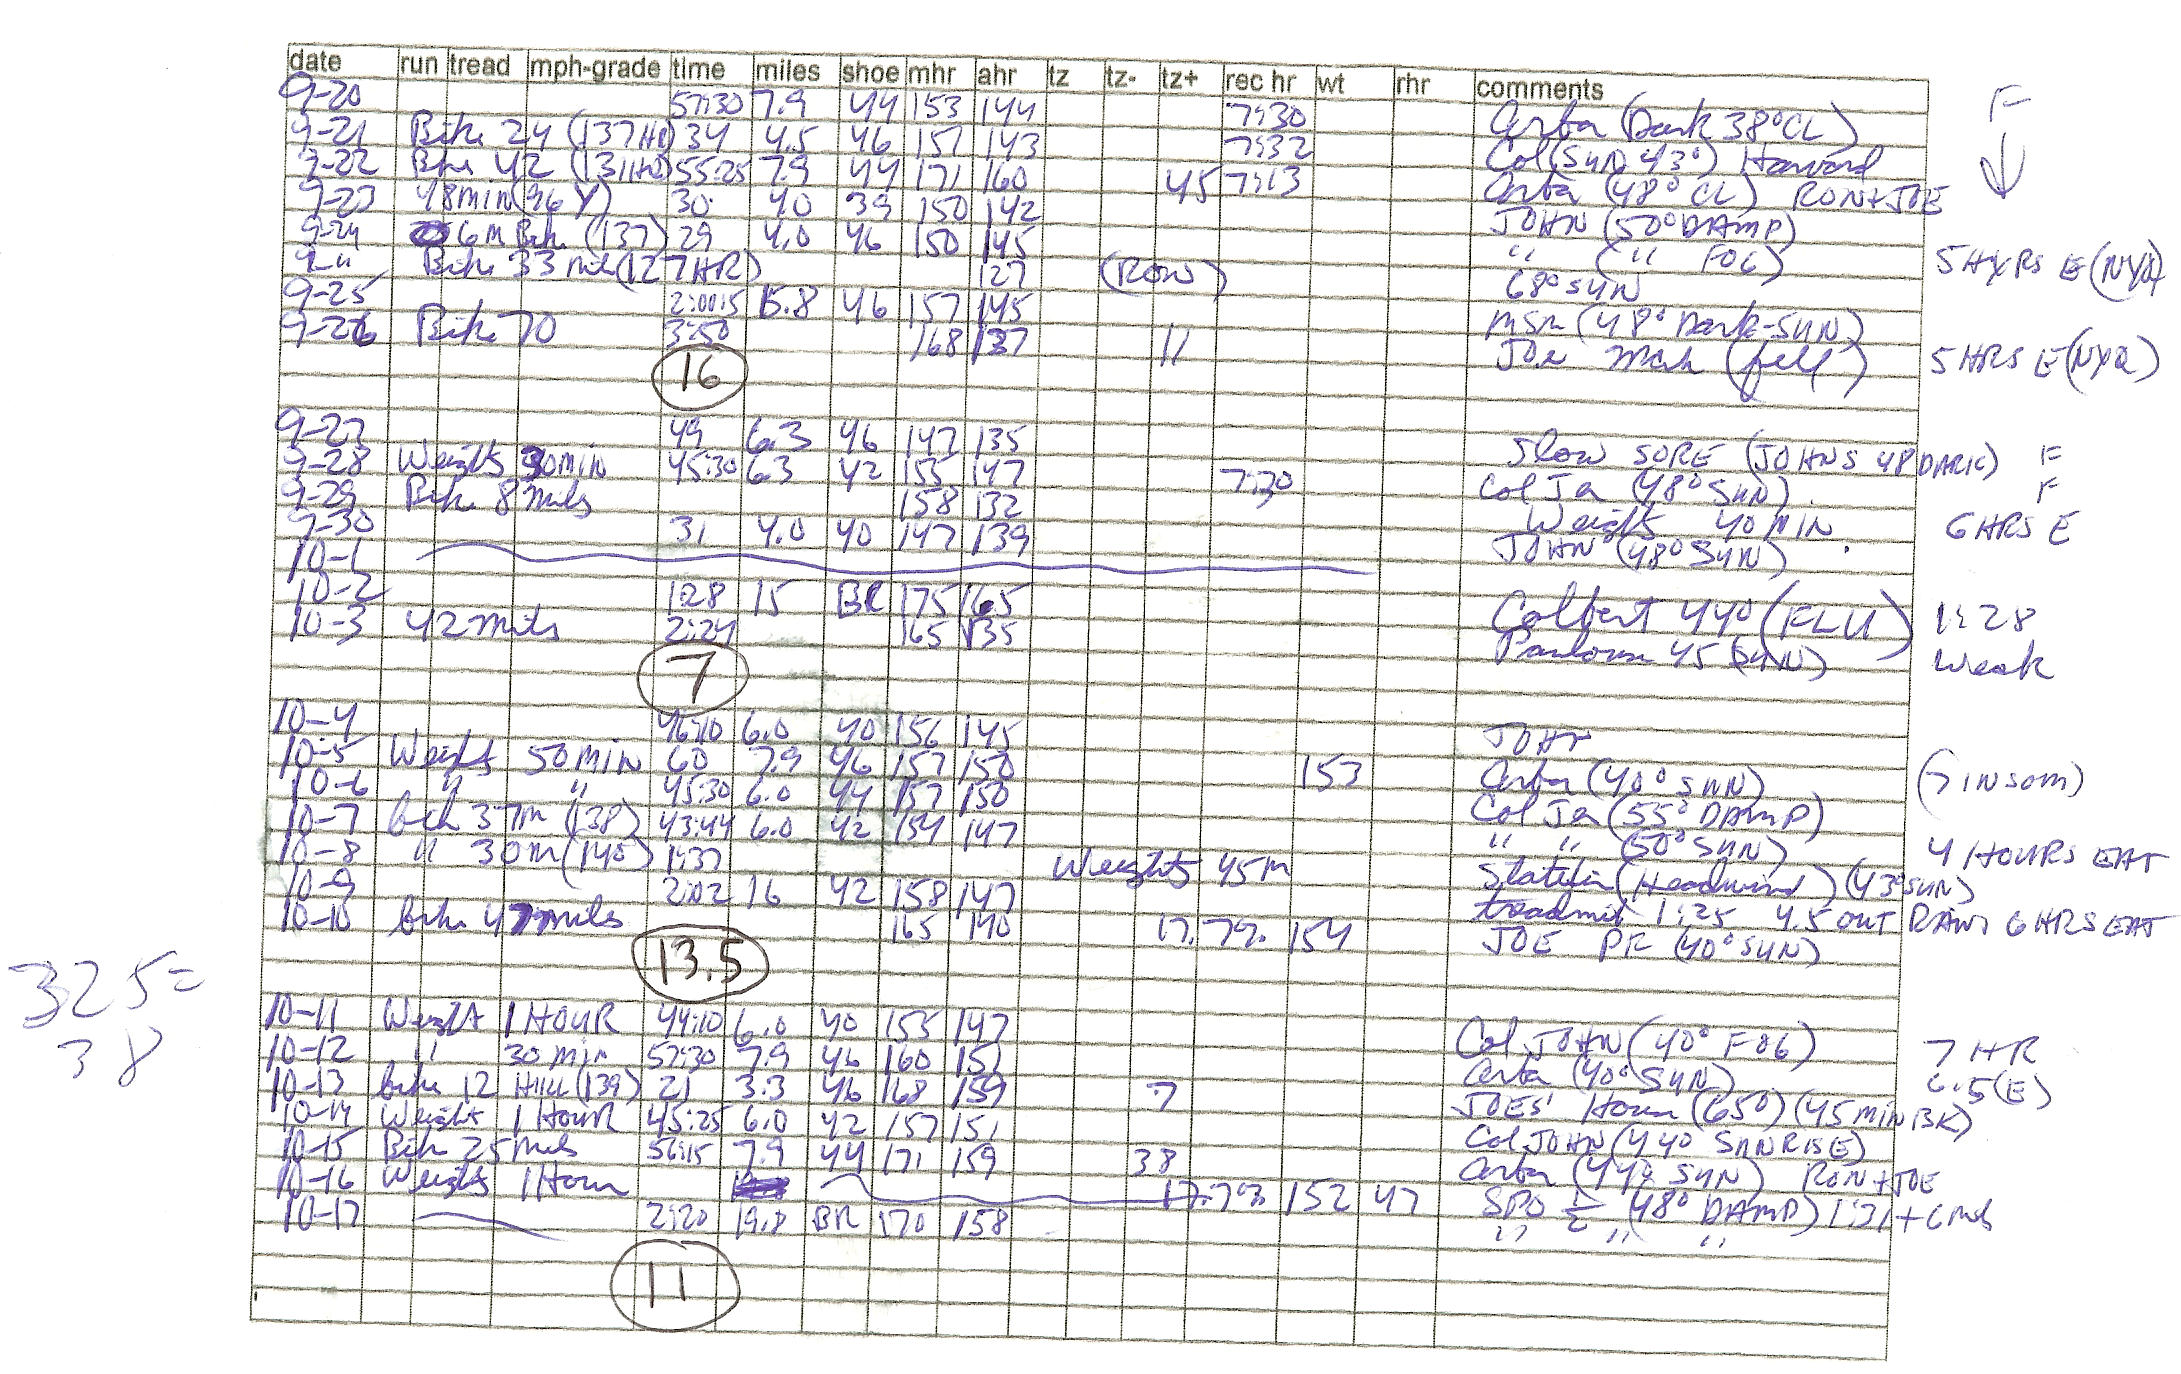 date run tread mph-grade time miles shoe mhr ahr tz tz- tz+ rec hr wt rhr comments
9-20 57:30 7.9 44 153 144 7:30 (Dark 38° CL) F
9-21 Bike 24 (137HR) 34 4.5 46 151 143 7:32 Col (SUN 43°) Harvard
9-22 Bike 42 (131HR) 55:25 7.9 44 171 160 45 7:13 (48° CL) RON+JOE
9-23 48min (96 Y) 30 4.0 39 150 142 JOHN (50° DAMP)
9-24 6m Bike (137) 29 4.0 46 150 145 " (" FOG)
9-" Bike 33 mile (127HR) 127 (ROW) 68° SUN 5 HRS E
9-25 2:00:15 15.8 46 157 145 MSM (48° Dark-SUN)
9-26 Bike 70 3:50 168 137 11 Joe (fell) 5 HRS E
16
9-27 49 6.3 46 147 135 Slow SORE (JOHNS 48 DARK) F
9-28 Weights 30min 45:30 6.3 42 155 147 7:30 Col Ja (48° SUN) F
9-29 Bike 8 miles 158 132 Weights 40 MIN 6 HRS E
9-30 31 4.0 40 147 139 JOHN (48° SUN)
10-1
10-2 1:28 15 BR 175 165 Colbert 44° (FLU) 1:28
10-3 42 miles 2:24 165 135 45 (SUN) Weak
7
10-4 46:10 6.0 40 156 145 JOHN
10-5 Weights 50 MIN 60 7.9 46 157 150 153 (40° SUN) (7 INSOM)
10-6 " " 45:30 6.0 44 157 150 Col Ja (55° DAMP)
10-7 bik 37m (138) 43:44 6.0 42 154 147 " " (50° SUN) 4 HOURS EAT
10-8 " 30m (140) 1:37 Weights 45m (Headwind) (43° SUN)
10-9 2:02 16 42 158 147 treadmill 1:25 4.5 OUT RAIN 6 HRS EAT
10-10 bike 47 miles 165 140 17.7% 154 JOE PR (40° SUN)
13.5
325=
38
10-11 Weights 1 HOUR 44:10 6.0 40 155 147 Col JOHN (40° FOG) 7 HR
10-12 " 30 min 57:30 7.9 46 160 151 (40° SUN) 6.5(E)
10-13 bike 12 HILL (139) 21 3.3 46 168 159 7 JOES' House (65°) (45 MIN BK)
10-14 Weights 1 HOUR 45:25 6.0 42 157 151 Col JOHN (44° SUNRISE)
10-15 Bike 25 miles 56:15 7.9 44 171 159 38 (44° SUN) RON+JOE
10-16 Weights 1 Hour 17.7% 152 47 SPO 1/2 (48° DAMP) 1:31+6mls
10-17 2:20 19.8 BR 170 158 " " "
11